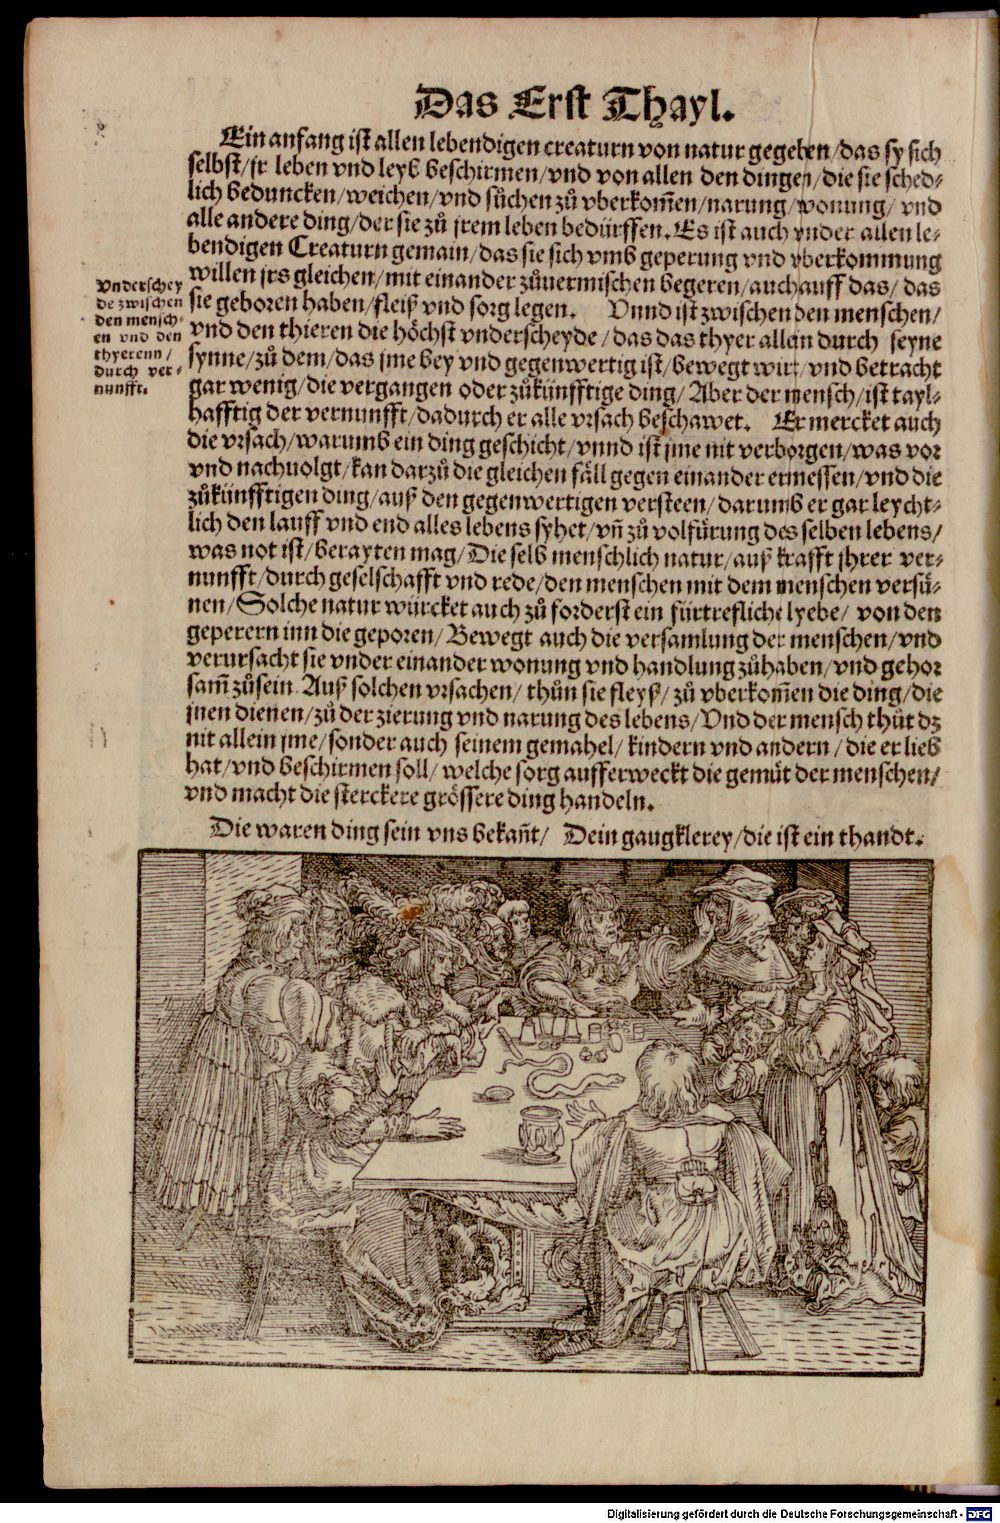 Das Erst Thayl.
Ein anfang ist allen lebendigen creaturn von natur gegeben/das sy sich
selbst/jr leben vnd leyb beschirmen/vnd von allen den dingen/die sie sched⸗
lich beduncken/weichen/vnd sůchen zů vberkom̃en/narung/wonung/ vnd
alle andere ding/der sie zů jrem leben bedürffen. Es ist auch vnder allen le⸗
bendigen Creaturn gemain/das sie sich vmb geperung vnd vberkommung
willen jrs gleichen/mit einander zůuermischen begeren/auch auff das/ das
sie geboren haben/fleiß vnd sorg legen. Vnnd ist zwischen den menschen/
vnd den thieren die höchst vnderscheyde/das das thyer allain durch seyne
synne/zů dem/das jme bey vnd gegenwertig ist/bewegt wirt/vnd betracht
gar wenig/die vergangen oder zůkünfftige ding/ Aber der mensch/ist tayl⸗
hafftig der vernunfft/dadurch er alle vrsach beschawet. Er mercket auch
die vrsach/warumb ein ding geschicht/vnnd ist jme nit verborgen/was vor
vnd nachuolgt/kan darzů die gleichen fäll gegen einander ermessen/vnd die
zůkünfftigen ding/auß den gegenwertigen versteen/darumb er gar leycht⸗
lich den lauff vnd end alles lebens syhet/vñ zů volfürung des selben lebens/
was not ist/berayten mag/Die selb menschlich natur/auß krafft jhrer ver⸗
nunfft/durch geselschafft vnd rede/den menschen mit dem menschen versü⸗
nen/Solche natur würcket auch zů forderst ein fürtrefliche lyebe/ von den
geperern inn die geporen/ Bewegt auch die versamlung der menschen/vnd
verursacht sie vnder einander wonung vnd handlung zůhaben/vnd gehor
sam̃ zůsein. Auß solchen vrsachen/ thůn sie fleyß/zů vberkom̃en die ding/die
jnen dienen/zů der zierung vnd narung des lebens/Vnd der mensch thůt dz
nit allein jme/sonder auch seinem gemahel/ kindern vnd andern/die er lieb
hat/vnd beschirmen soll/welche sorg aufferweckt die gemüt der menschen/
vnd macht die sterckere grössere ding handeln.
Vnderschey
de zwischen
den mensch⸗
en vnd den
thyerenn/
durch ver⸗
nunfft.
Die waren ding sein vns bekañt/ Dein gaugklerey/die ist ein thandt.
Digitalisierung gefördert durch die Deutsche Forschungsgemeinschaft - DFG